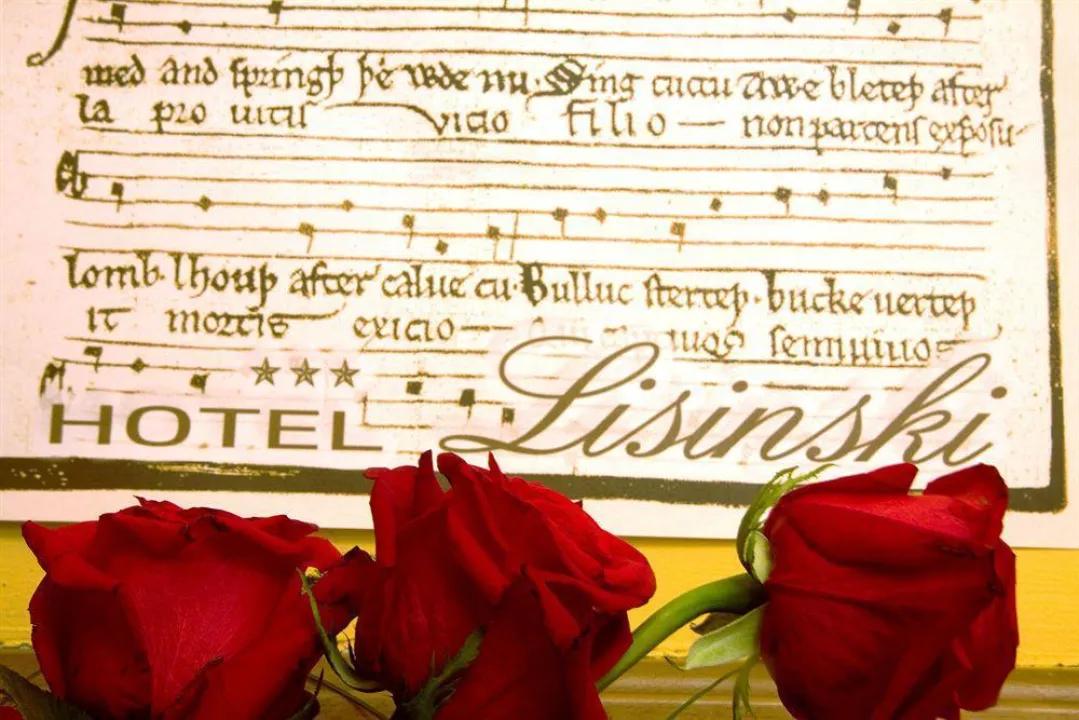 med and springþ þe wde nu. Sing cuccu Awe bleteþ after
la pro uitis vicio filio — non parcens exposu
lomb. lhouþ after calue cu. Bulluc sterteþ. bucke uerteþ
it mortis exicio — semiuiuos
★★★
HOTEL Lisinski